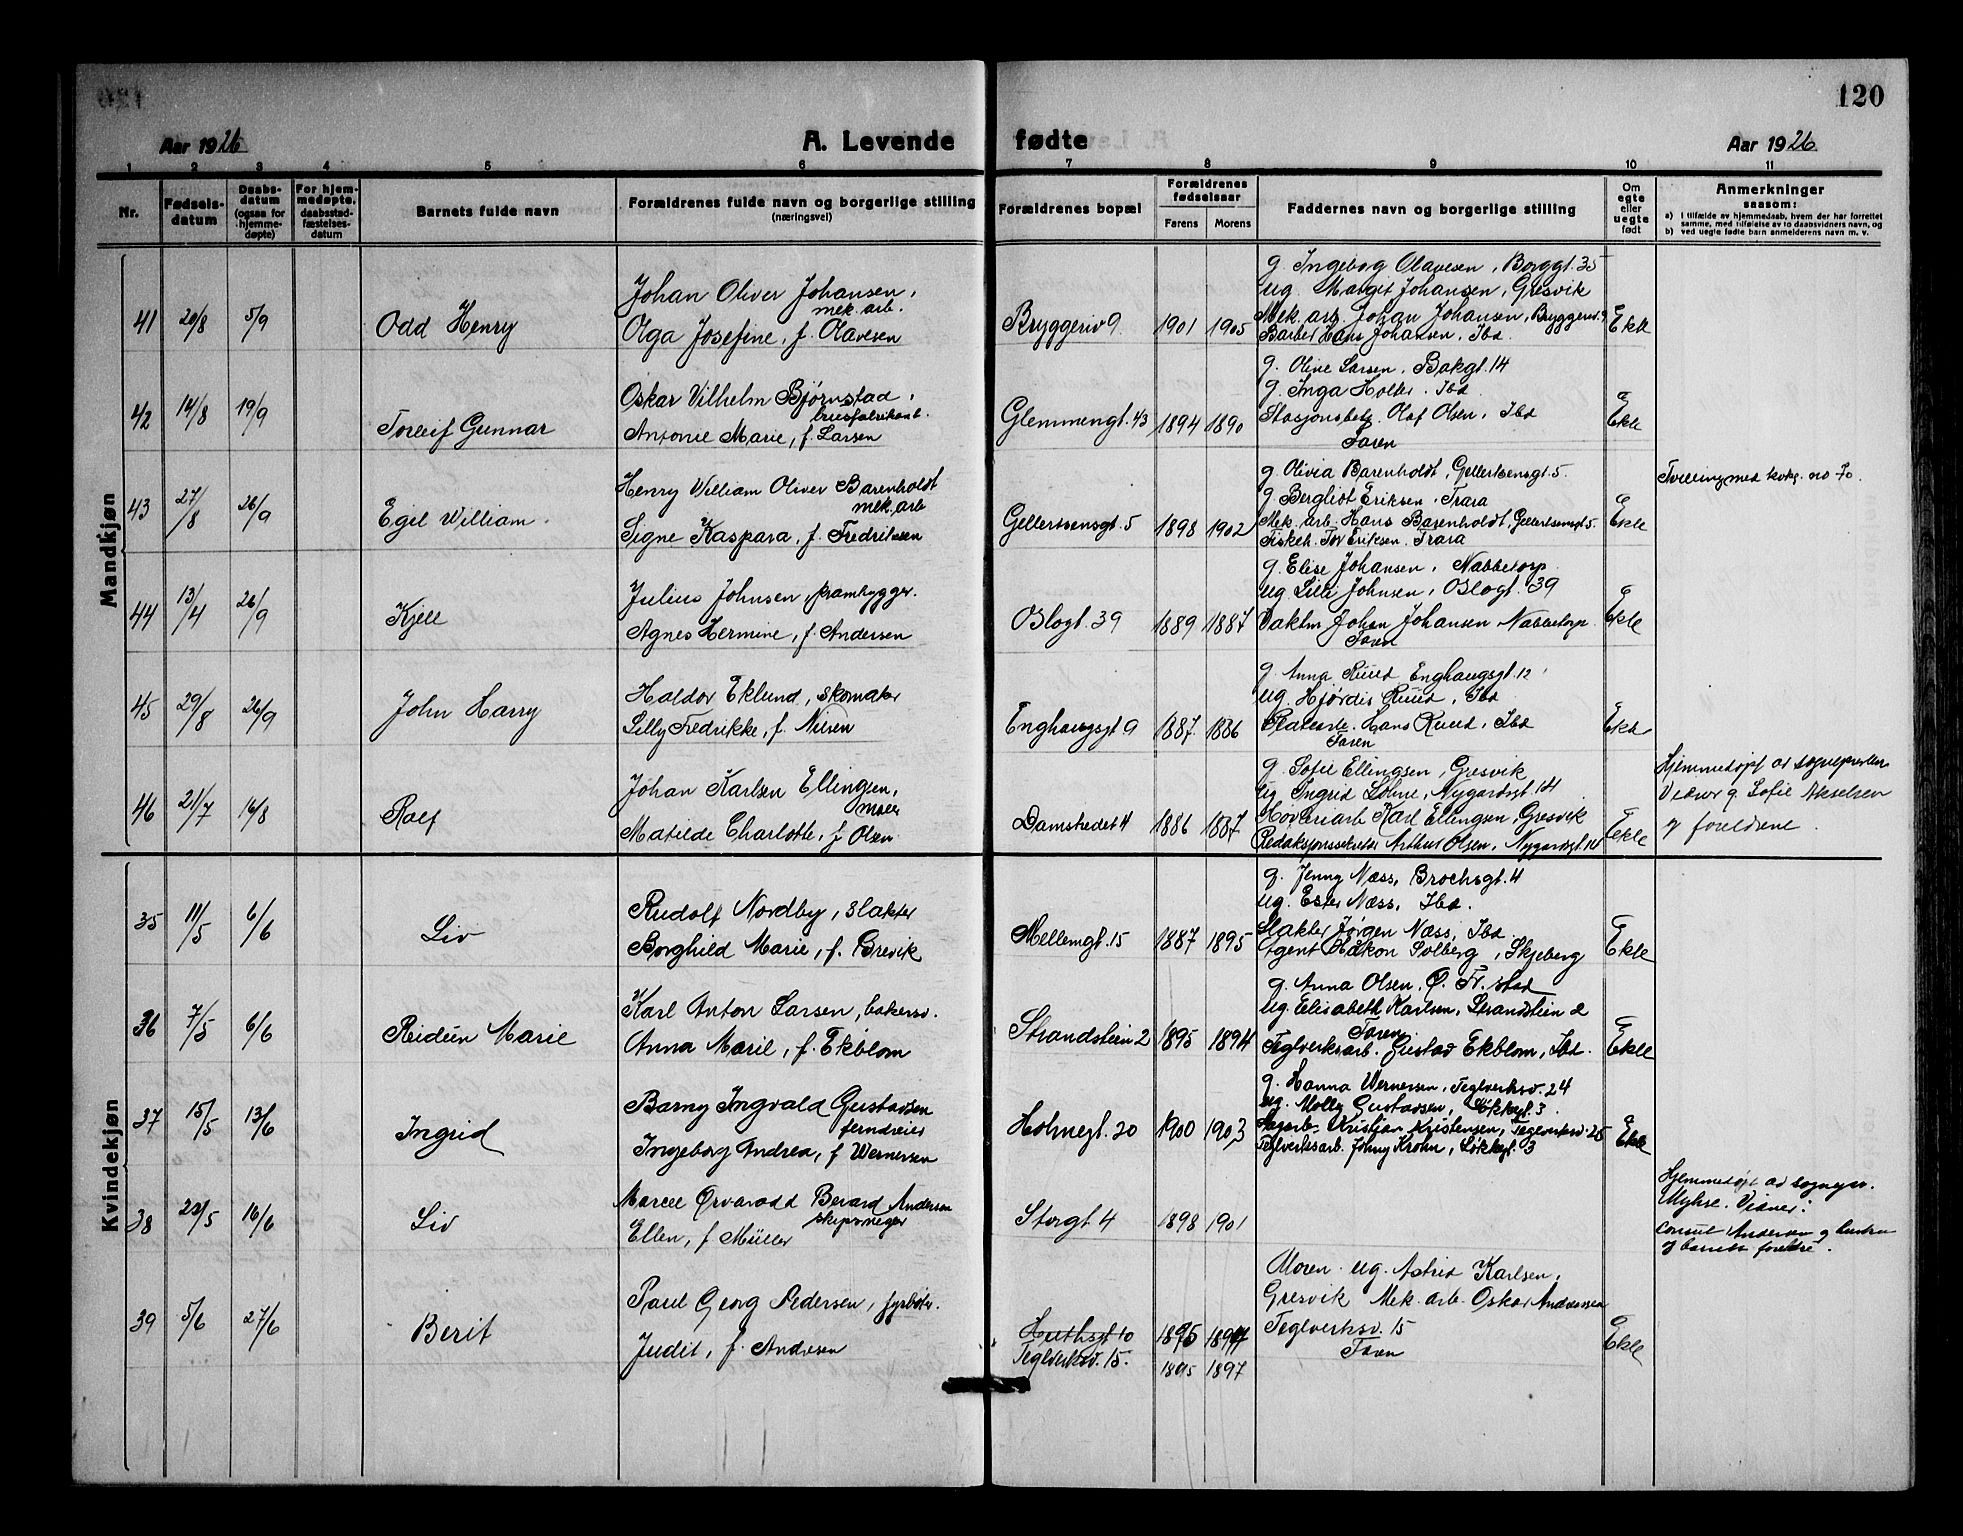 120
Aar 1926
A. Levende fødte
Aar 1926
1 2 3 4 5 6 7 8 9 10 11
Nr.
Fødsels-
datum
Daabs-
datum
(ogsaa for
hjemme-
døpte)
For hjem-
medøpte,
daabsstad-
fæstelses-
datum
Barnets fulde navn
Forældrenes fulde navn og borgerlige stilling
(næringsvei)
Forældrenes bopæl
Forældrenes
fødselsaar
Farens Morens
Faddernes navn og borgerlige stilling
Om
egte
eller
uegte
født
Anmerkninger
saasom:
a) I tilfælde av hjemmedaab, hvem der har forrettet
samme, med tilføielse av to daabsvidners navn, og
b) ved uegte fødte barn anmelderens navn m. v.
Mandkjøn
41 20/8 5/9
Odd Henry
Johan Oliver Johansen,
mek. arb.
Olga Josefine, f. Olavesen
Bryggeriv 9 1901 1905
g. Ingeborg Olavesen, Borggt. 35
ug. Margit Johansen, Gresvik
Mek. arb. Johan Johansen, Bryggeriv. 9
Barber Hans Johansen, Ibd.
Ekte
42 14/8 19/9
Torleif Gunnar
Oskar Vilhelm Bjørnstad,
brusfabrikant.
Antonie Marie, f. Larsen
Glemmengt. 43 1894 1890
g. Oline Larsen, Bakgt. 14
g. Inga Holter. Ibd
Stasjonsbetj. Olaf Olsen, Ibd
Faren
Ekte
43 27/8 26/9
Egil William.
Henry William Oliver Barenholdt
mek. arb
Signe Kaspara, f. Fredriksen
Gellertsensgt. 5 1898 1902
g. Olivia Barenholdt, Gellertsensgt. 5.
g. Bergliot Eriksen. Trara
Mek. arb. Hans Barenholdt, Gellertsensgt 5
Fiskeh. Tor Eriksen. Trara
Ekte
Tvilling med kvkj. no 70.
44 13/4 26/9
Kjell
Julius Johnsen, prambygger.
Agnes Hermine, f. Andersen
Oslogt. 39 1889 1887
g. Elise Johansen, Nabbetorp
ug. Lilli Johnsen, Oslogt. 39
Vaktm Johan Johansen Nabbetorp.
Faren
Ekte
45 29/8 26/9
John Harry
Haldor Eklund, skomaker
Lilly Fredrikke, f. Nilsen
Enghaugsgt 9 1887. 1886
g. Anna Ruud Enghaugsgt. 12
ug. Hjørdis Ruud, Ibd
Hans Ruud, Ibd
Faren
Ekte
46 21/7 16/8
Rolf
Johan Karlsen Ellingsen,
maler
Matilde Charlotte, f Olsen.
Damstedet 4 1886 1887
g. Sofie Ellingsen, Gresvik
ug. Ingrid Løhne, Nygardsgt. 14.
Høvleriarb Karl Ellingsen, Gresvik
Redaksjonssekretær Arthur Olsen, Nygardsgt 14
Ekte
Hjemmedøpt av sognepresten
Vidner g Sofie Akselsen
og foreldrene.
Kvindekjøn
35 11/5 6/6
Liv
Rudolf Nordby, slakter
Borghild Marie, f. Brevik
Mellemgt. 15 1887 1895
g. Jenny Næss, Brochsgt. 4
ug. Ester Næss, Ibd.
Slakter Jørgen Næss, Ibd
Agent Håkon Solberg, Skjeberg
Ekte
36 7/5 6/6
Reidun Marie
Karl Anton Larsen, bakersv.
Anna Marie, f. Ekblom
Strandstien 2 1895 1894
g. Anna Olsen, Ø. Fr. stad
ug. Elisabeth Karlsen, Strandstien 2
Faren
Teglverksarb. Gustav Ekblom, Ibd.
Ekte
37 15/5 13/6
Ingrid
Barny Ingvald Gustavsen
jerndreier
Ingeborg Andrea, f Wernersen
Holmegt. 20 1900 1903
g. Hanna Wernersen, Teglverksv. 24
ug. Molly Gustavsen, Løkkegt. 3.
Kristian Kristensen, Teglverksv. 25
Teglverksarb. Johny Krohn, Løkkegt. 3
Ekte
38 28/5 16/6
Liv
Marcel Ørvarodd Berard Andersen
skipsmegler
Ellen, f Müller
Storgt 4 1898 1901
Hjemmedøpt av sognepr.
Myhre. Vidner:
Consul Andersen og hustru
og barnets foreldre.
39 5/6 27/6
Berit
Paul Georg Pedersen, fyrbøter.
Judit, f. Andersen
Huthsgt 10 1895 1897
Teglverksv. 15. 1895 1897
Moren. ug. Astrid Karlsen,
Gresvik Mek. arb. Oskar Andreassen
Teglverksv. 15
Faren
Ekte